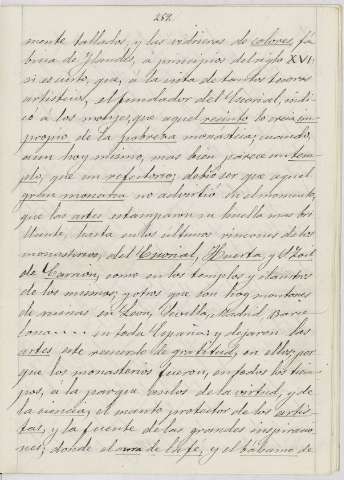 252.
mente tallados, y las vidrieras de colores, fá-
brica de Flandes, á principios del siglo XVI:
si es cierto, que, á la vista de tantos tesoros
artísticos, el fundador del Escorial, indi-
có á los monjes, que aquel recinto lo creia im-
propio de la pobreza monástica; cuando,
aun hoy mismo, mas bien parece un tem-
plo, que un refectorio; debió ser que aquel
gran monarca no advirtió de el momento,
que las artes estamparon su huella mas bri-
llante, hasta en los últimos rincones de los
monasterios, del Escorial, Huerta, y S. Zoil
de Carrion, como en los templos y claustros
de los mismos; y otros que son hoy montones
de ruinas en Leon, Sevilla, Madrid, Barce-
lona.... en toda España; y dejaron las
artes este recuerdo de gratitud, en ellos; por
que los monasterios fueron, en todos los tiem-
pos, á la par que asilos de la virtud, y de
la ciencia, el manto protector de los artis-
tas, y la fuente de las grandes inspiracio-
nes; donde el aura de la fé, y el bálsamo de